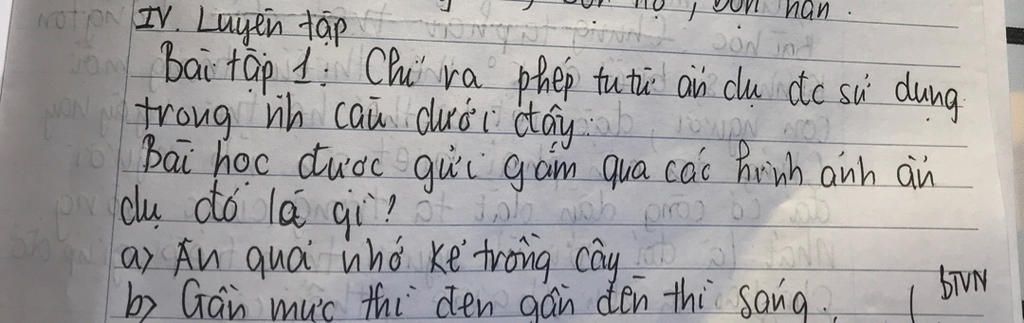 IV. Luyện tập
Bài tập 1: Chỉ ra phép tu từ ẩn dụ đc sử dụng
trong nh câu dưới đây:
Bài học được gửi gắm qua các hình ảnh ẩn
dụ đó là gì?
a) Ăn quả nhớ kẻ trồng cây
b) Gần mực thì đen gần đèn thì sáng.
BTVN